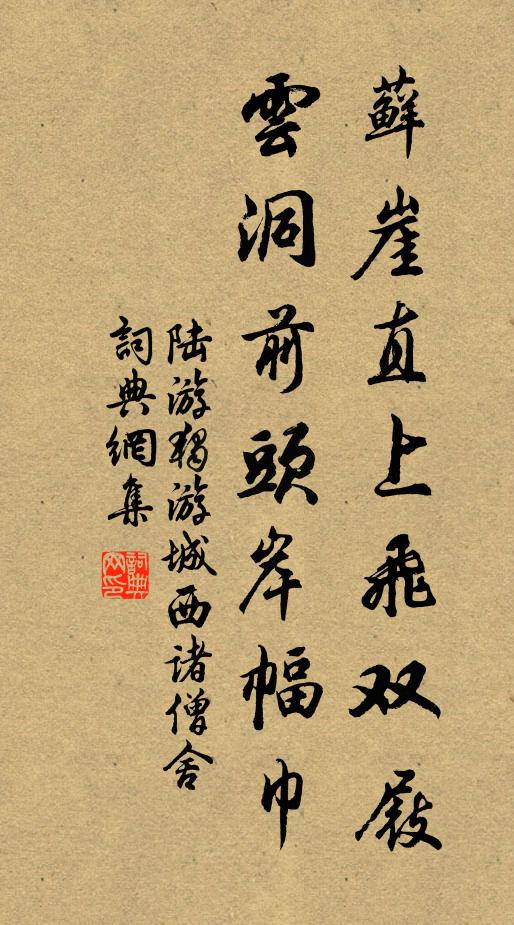 蘚崖直上飛双屐
雲洞前頭岸幅巾
陆游獨游城西诸僧舍
詞典網集
詞典网印